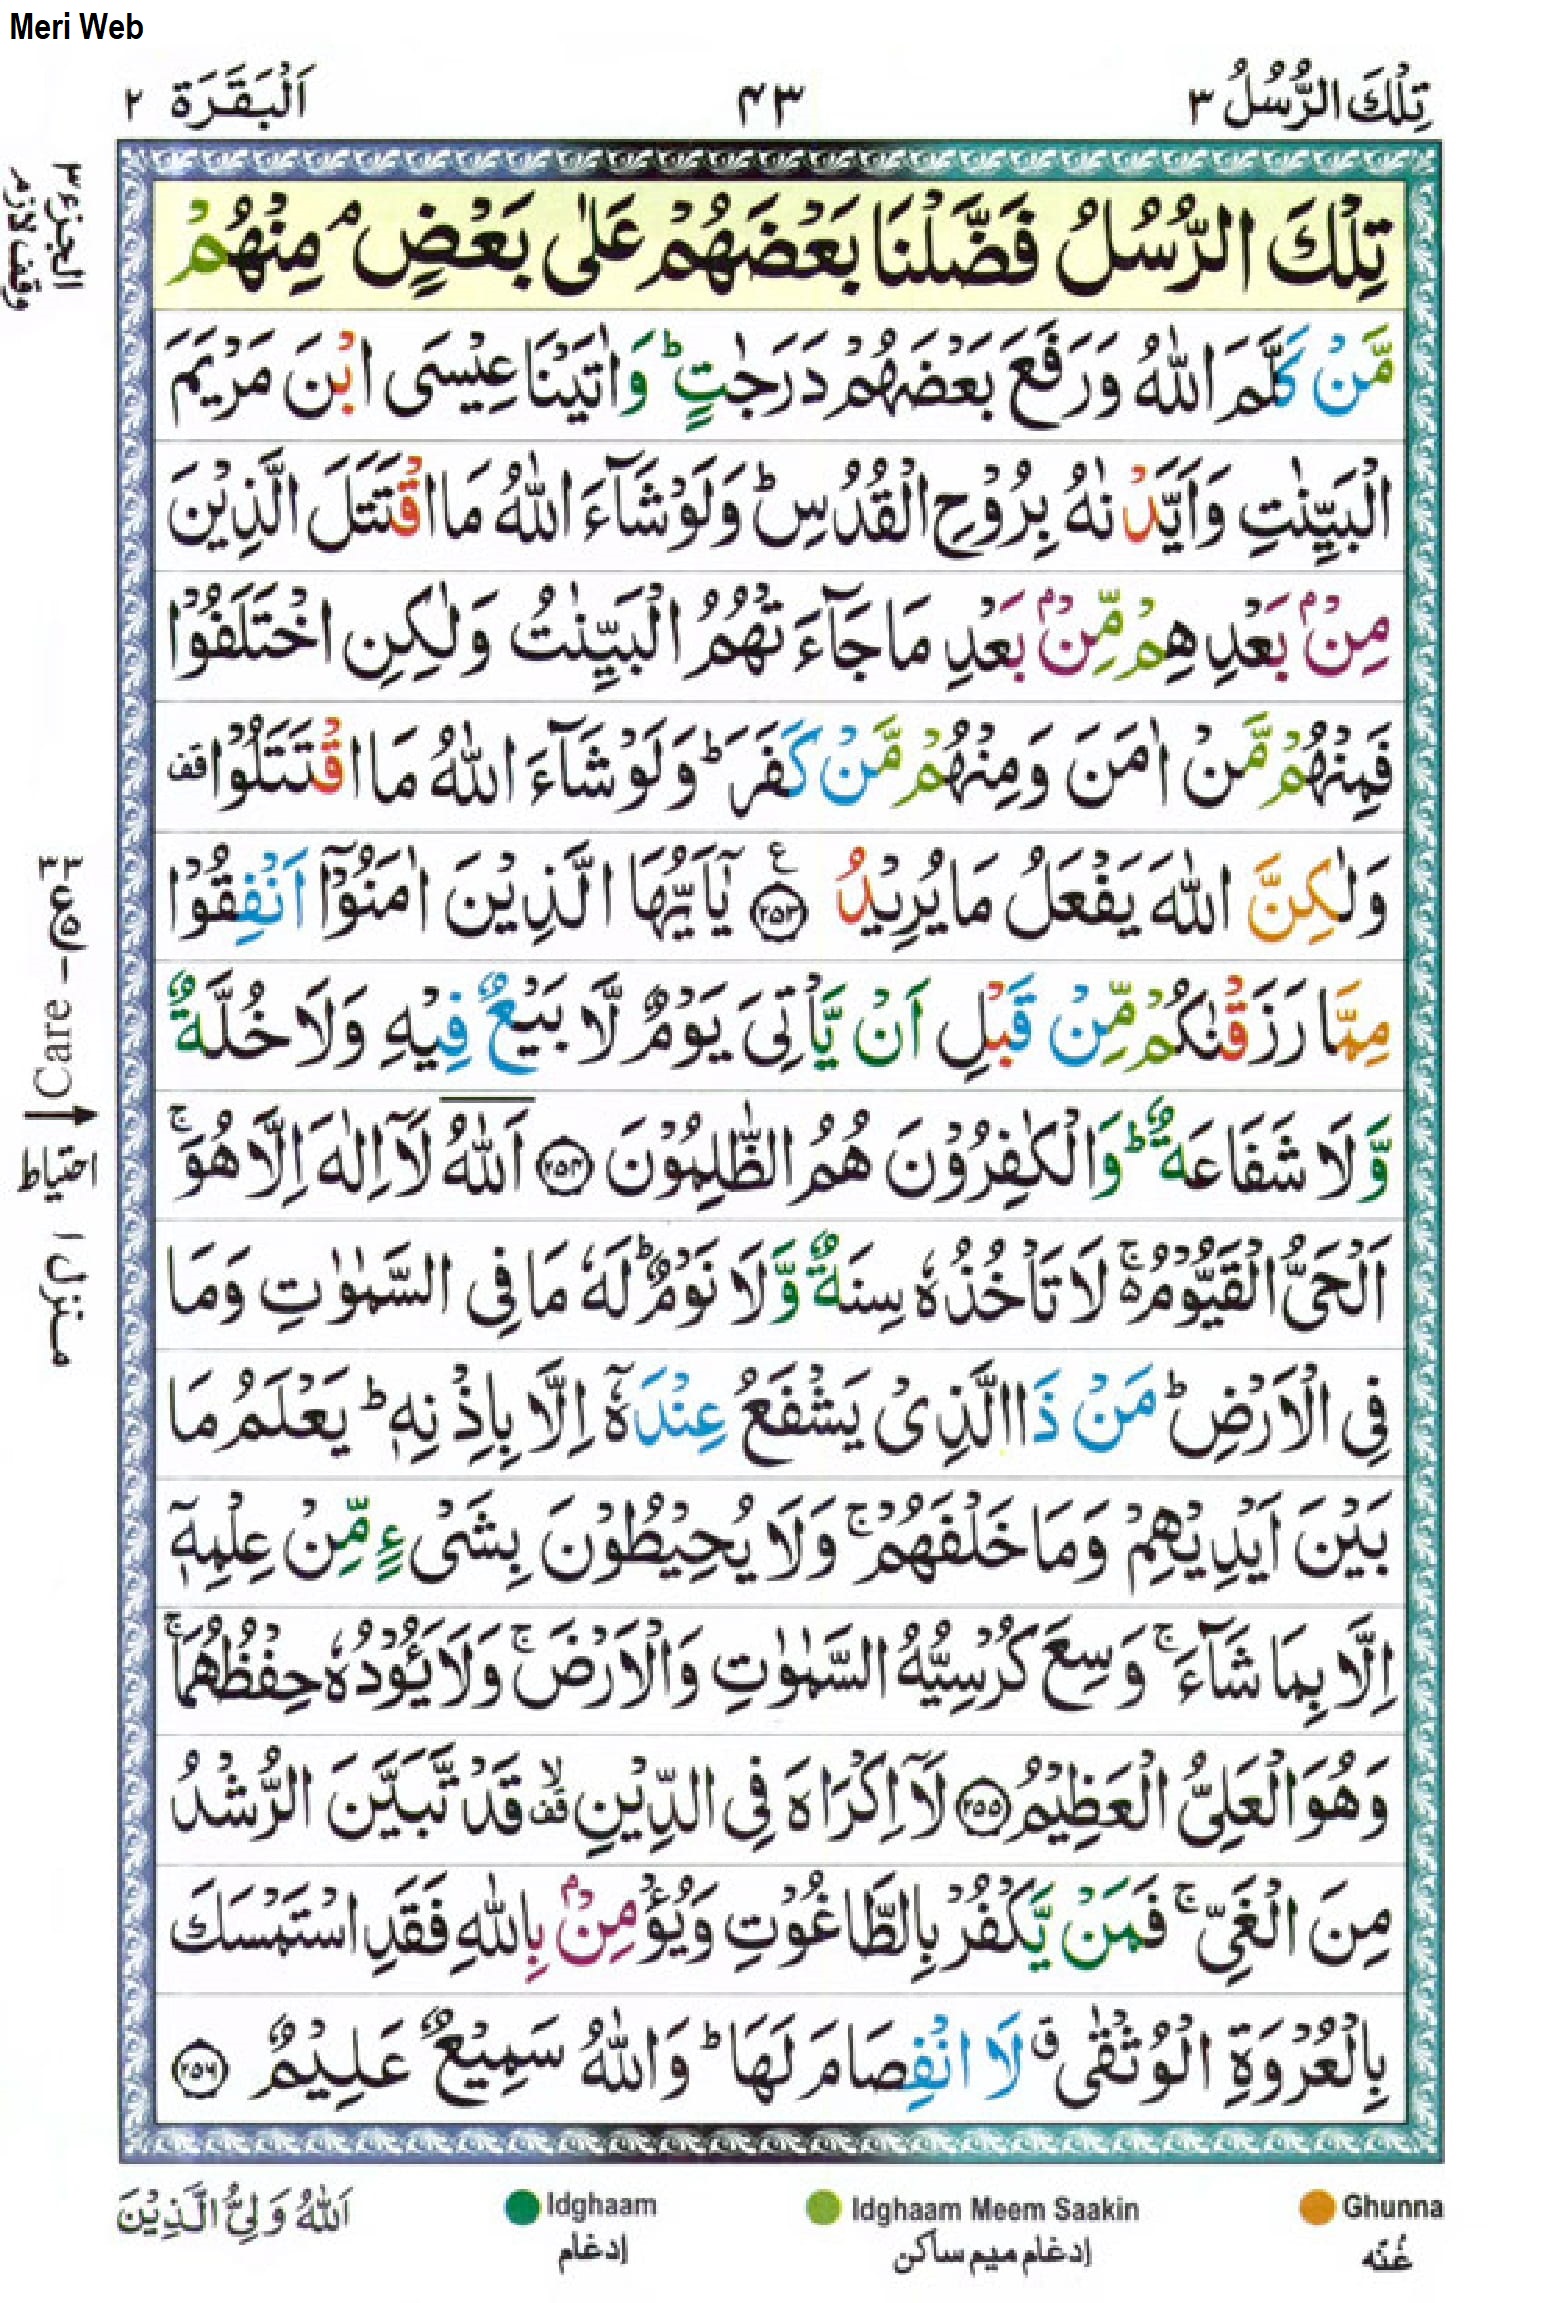 Meri Web
تِلْكَ الرُّسُلُ ٣
٤٣
اَلْبَقَرَة ٢
الجزء ٣
وقف لازم
تِلْكَ الرُّسُلُ فَضَّلْنَا بَعْضَهُمْ عَلٰى بَعْضٍ ۘ مِنْهُمْ
مَّنْ كَلَّمَ اللّٰهُ وَرَفَعَ بَعْضَهُمْ دَرَجٰتٍ ؕ وَاٰتَيْنَا عِيْسَى ابْنَ مَرْيَمَ
الْبَيِّنٰتِ وَاَيَّدْنٰهُ بِرُوْحِ الْقُدُسِ ؕ وَلَوْ شَآءَ اللّٰهُ مَا اقْتَتَلَ الَّذِيْنَ
مِنْۢ بَعْدِهِمْ مِّنْۢ بَعْدِ مَا جَآءَتْهُمُ الْبَيِّنٰتُ وَلٰكِنِ اخْتَلَفُوْا
فَمِنْهُمْ مَّنْ اٰمَنَ وَمِنْهُمْ مَّنْ كَفَرَ ؕ وَلَوْ شَآءَ اللّٰهُ مَا اقْتَتَلُوْا قف
وَلٰكِنَّ اللّٰهَ يَفْعَلُ مَا يُرِيْدُ ۧ ﴿٢٥٣﴾ يٰۤاَيُّهَا الَّذِيْنَ اٰمَنُوْۤا اَنْفِقُوْا
مِمَّا رَزَقْنٰكُمْ مِّنْ قَبْلِ اَنْ يَّاْتِىَ يَوْمٌ لَّا بَيْعٌ فِيْهِ وَلَا خُلَّةٌ
وَّلَا شَفَاعَةٌ ؕ وَالْكٰفِرُوْنَ هُمُ الظّٰلِمُوْنَ ﴿٢٥٤﴾ اَللّٰهُ لَاۤ اِلٰهَ اِلَّا هُوَ ۚ
اَلْحَىُّ الْقَيُّوْمُ ۚ لَا تَاْخُذُهٗ سِنَةٌ وَّلَا نَوْمٌ ؕ لَهٗ مَا فِى السَّمٰوٰتِ وَمَا
فِى الْاَرْضِ ؕ مَنْ ذَا الَّذِىْ يَشْفَعُ عِنْدَهٗۤ اِلَّا بِاِذْنِهٖ ؕ يَعْلَمُ مَا
بَيْنَ اَيْدِيْهِمْ وَمَا خَلْفَهُمْ ۚ وَلَا يُحِيْطُوْنَ بِشَىْءٍ مِّنْ عِلْمِهٖۤ
اِلَّا بِمَا شَآءَ ۚ وَسِعَ كُرْسِيُّهُ السَّمٰوٰتِ وَالْاَرْضَ ۚ وَلَا يَـُٔوْدُهٗ حِفْظُهُمَا ۚ
وَهُوَ الْعَلِىُّ الْعَظِيْمُ ﴿٢٥٥﴾ لَاۤ اِكْرَاهَ فِى الدِّيْنِ ۙ قف قَدْ تَّبَيَّنَ الرُّشْدُ
مِنَ الْغَىِّ ۚ فَمَنْ يَّكْفُرْ بِالطَّاغُوْتِ وَيُؤْمِنْۢ بِاللّٰهِ فَقَدِ اسْتَمْسَكَ
بِالْعُرْوَةِ الْوُثْقٰى ق لَا انْفِصَامَ لَهَا ؕ وَاللّٰهُ سَمِيْعٌ عَلِيْمٌ ﴿٢٥٦﴾
Care
احتیاط
منزل ١
Ghunna
غُنّه
Idghaam Meem Saakin
إدغام ميم ساكن
Idghaam
إدغام
اَللّٰهُ وَلِىُّ الَّذِيْنَ